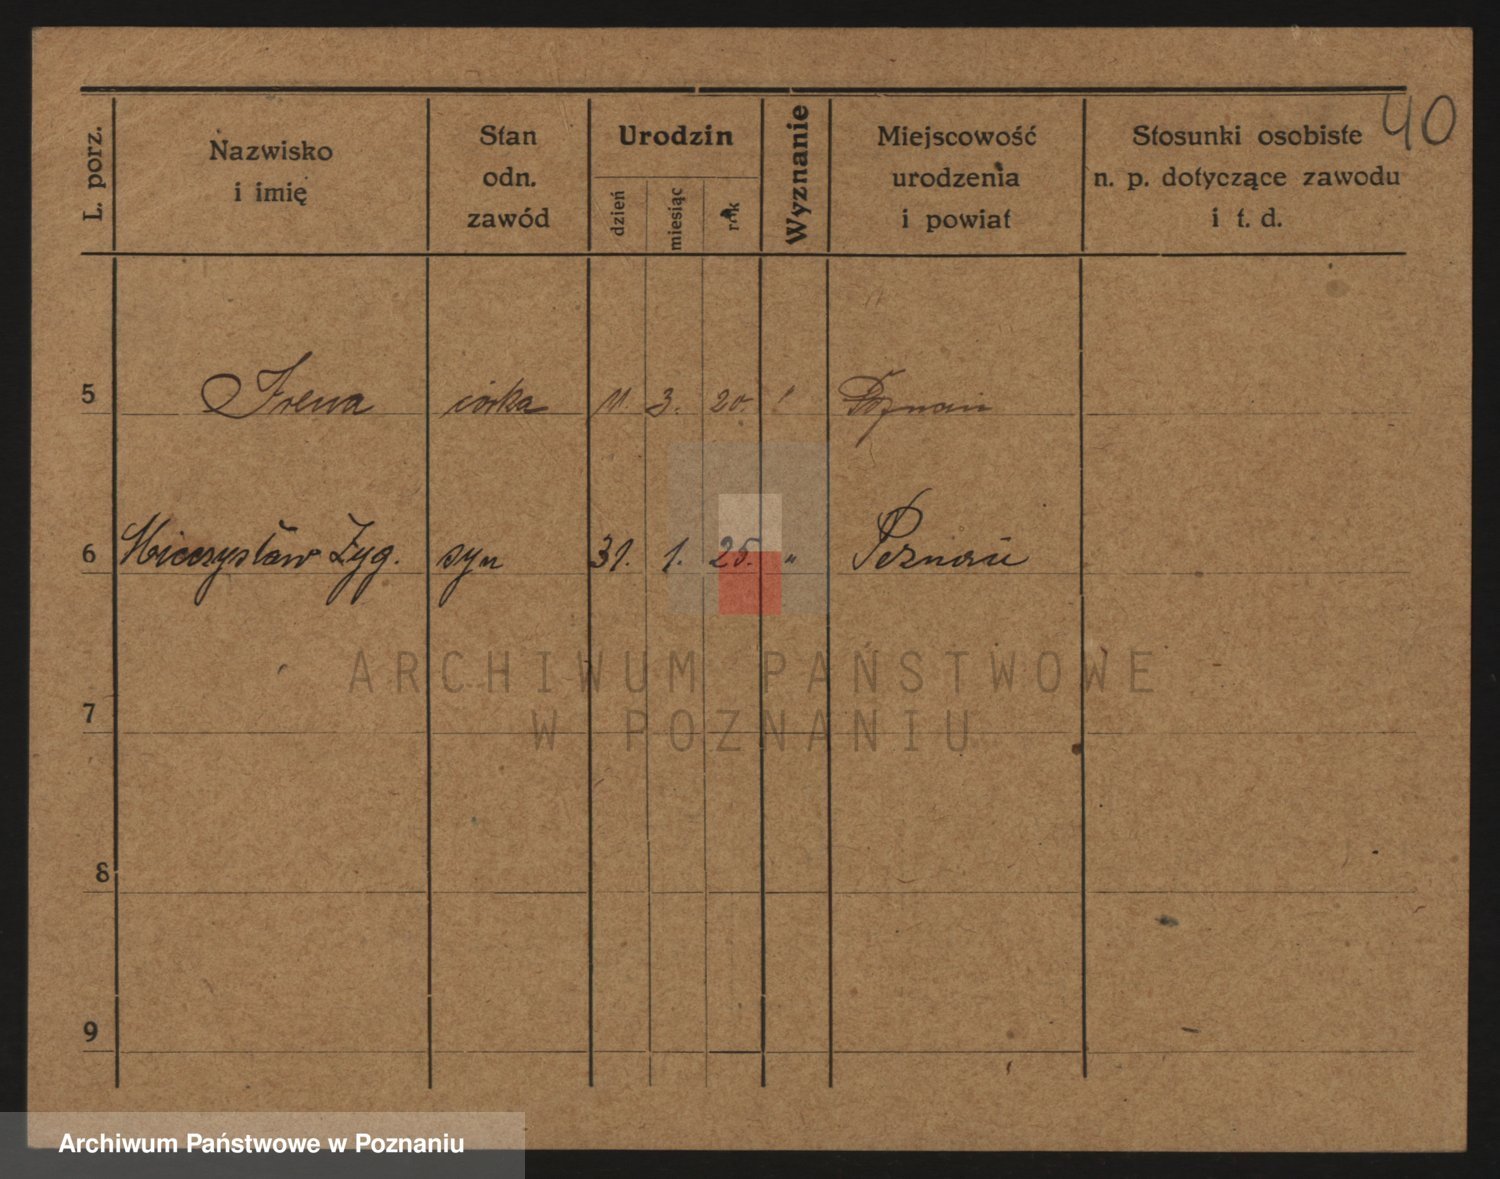 40
L. porz.
Nazwisko
i imię
Stan
odn.
zawód
Urodzin
dzień
miesiąc
rok
Wyznanie
Miejscowość
urodzenia
i powiat
Stosunki osobiste
n. p. dotyczące zawodu
i t. d.
5 Irena córka 11. 3. 20. " Poznań
6 Mieczysław Zyg. syn 31. 1. 25. " Poznań
7
8
9
ARCHIWUM PAŃSTWOWE
W POZNANIU
Archiwum Państwowe w Poznaniu